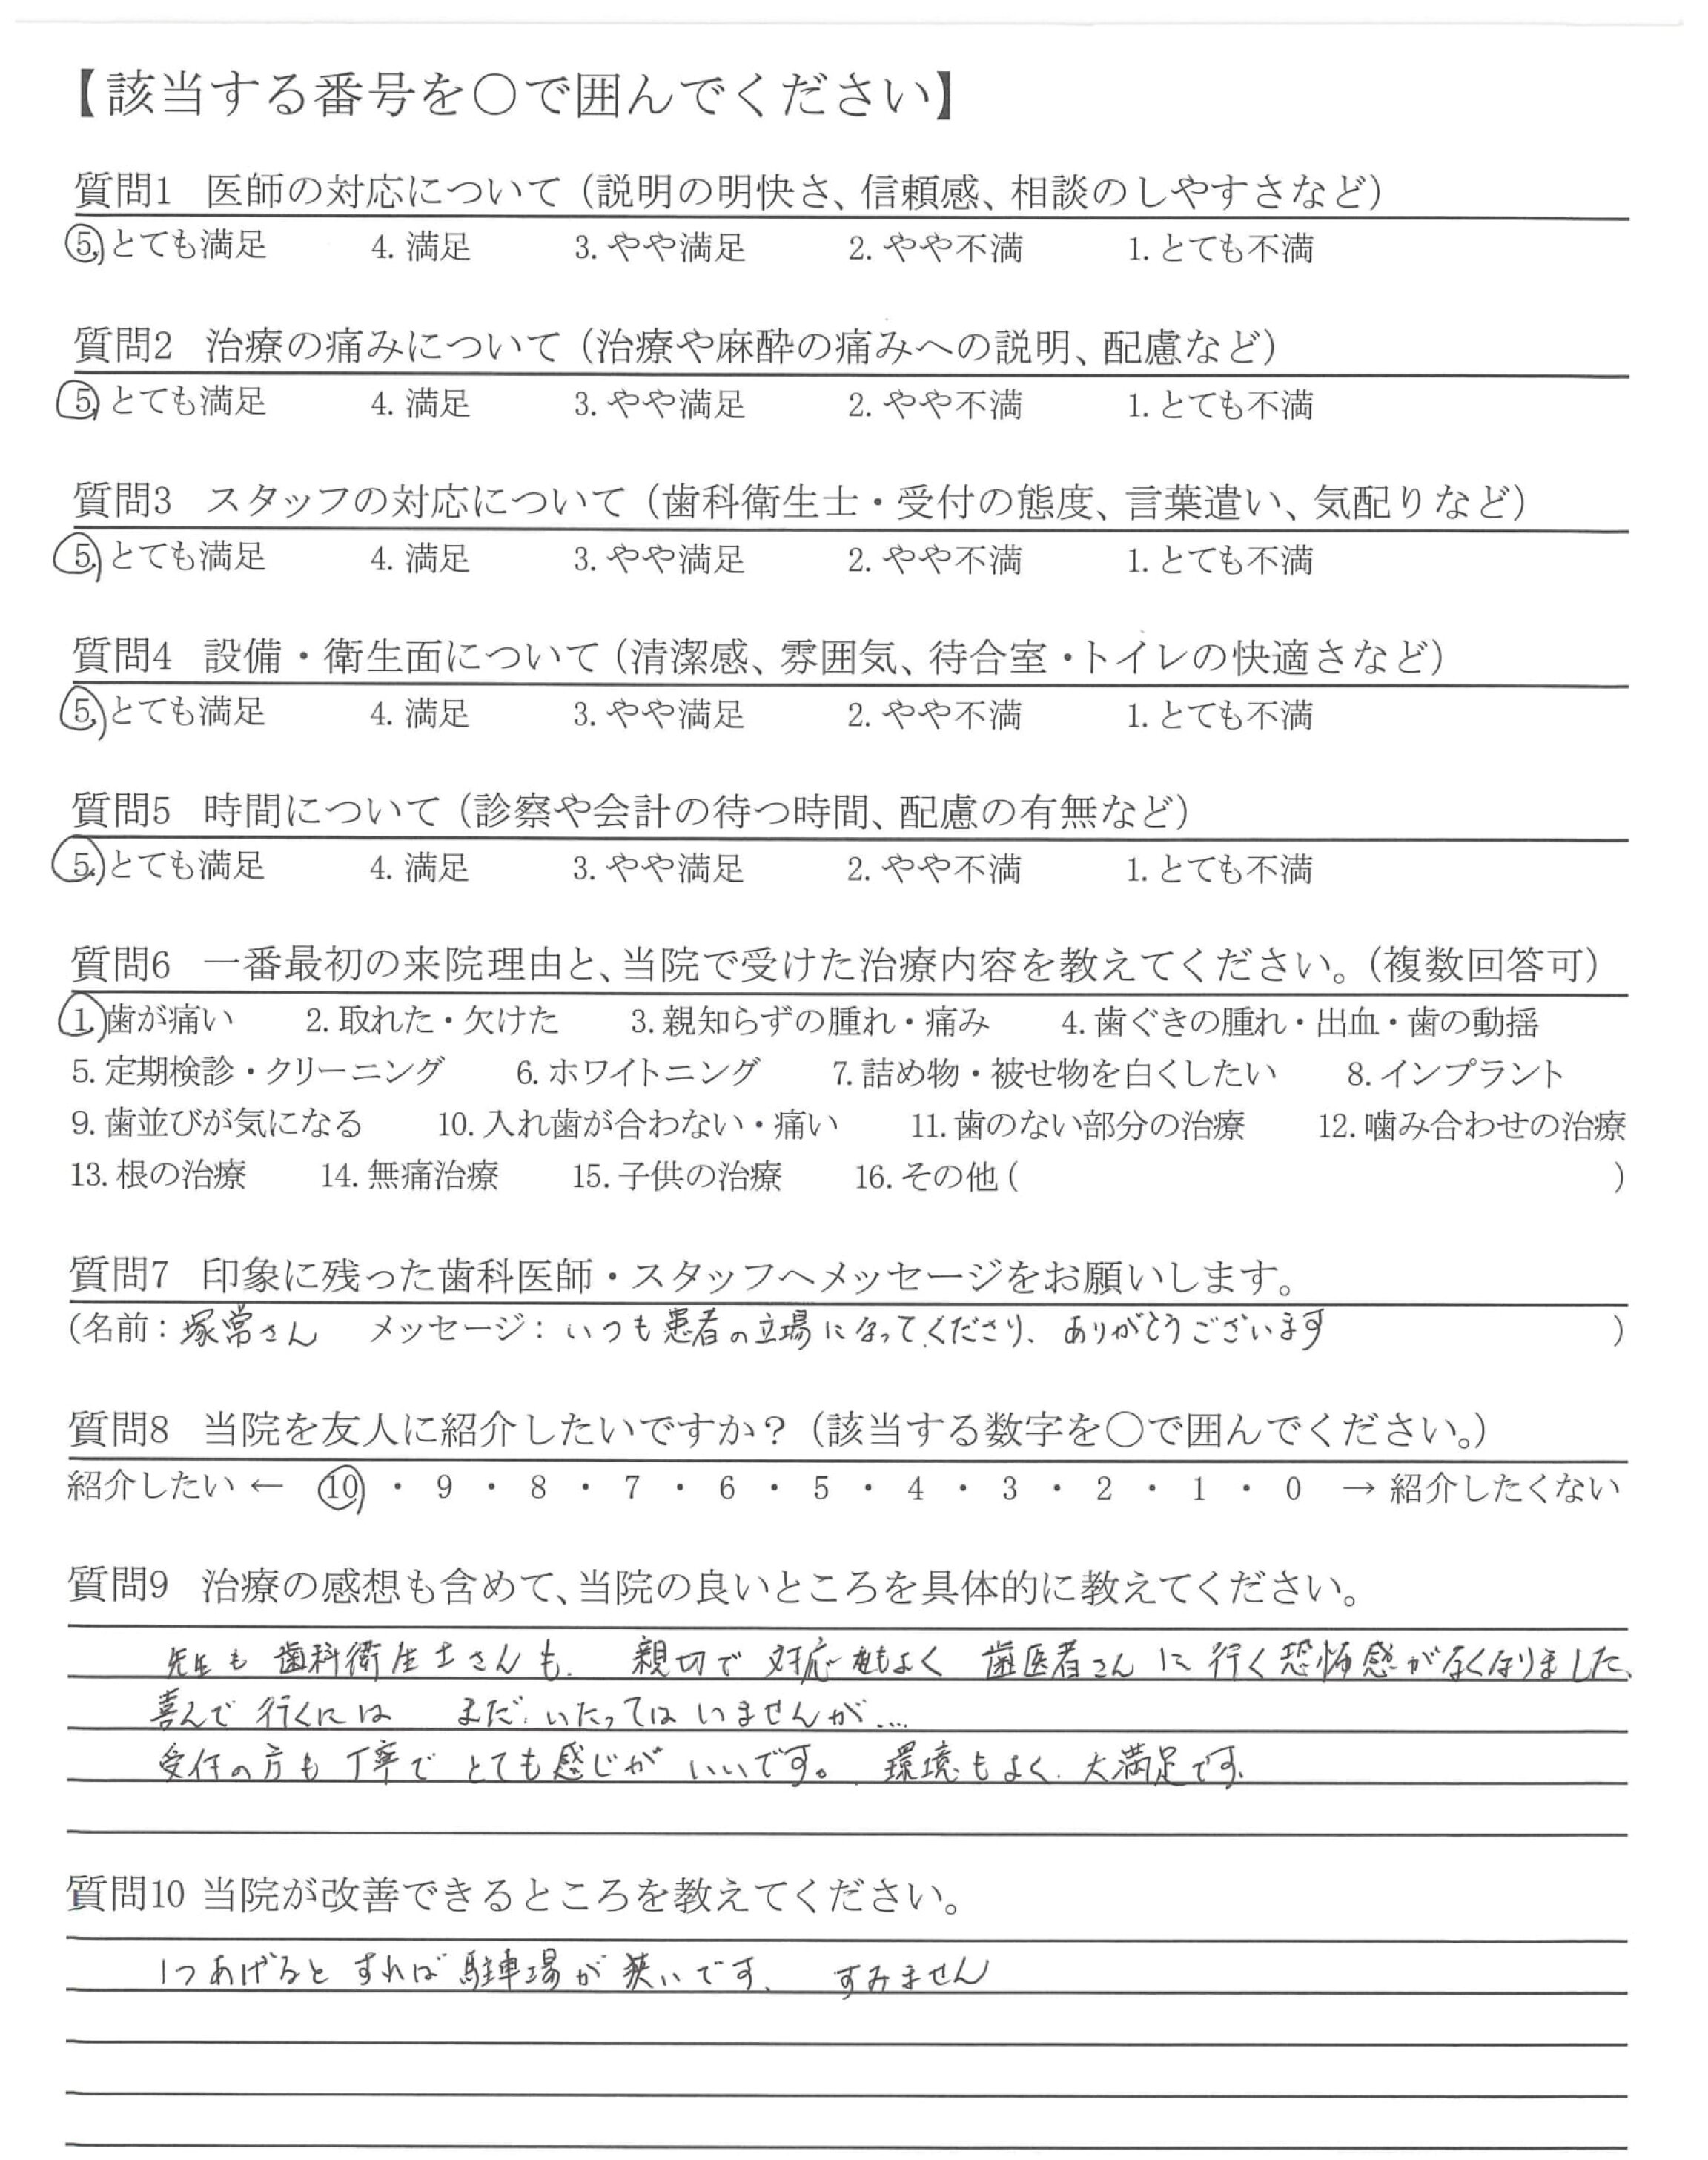 【該当する番号を○で囲んでください】
質問1 医師の対応について（説明の明快さ、信頼感、相談のしやすさなど）
5. とても満足 4. 満足 3. やや満足 2. やや不満 1. とても不満
質問2 治療の痛みについて（治療や麻酔の痛みへの説明、配慮など）
5. とても満足 4. 満足 3. やや満足 2. やや不満 1. とても不満
質問3 スタッフの対応について（歯科衛生士・受付の態度、言葉遣い、気配りなど）
5. とても満足 4. 満足 3. やや満足 2. やや不満 1. とても不満
質問4 設備・衛生面について（清潔感、雰囲気、待合室・トイレの快適さなど）
5. とても満足 4. 満足 3. やや満足 2. やや不満 1. とても不満
質問5 時間について（診察や会計の待つ時間、配慮の有無など）
5. とても満足 4. 満足 3. やや満足 2. やや不満 1. とても不満
質問6 一番最初の来院理由と、当院で受けた治療内容を教えてください。（複数回答可）
1. 歯が痛い 2. 取れた・欠けた 3. 親知らずの腫れ・痛み 4. 歯ぐきの腫れ・出血・歯の動揺
5. 定期検診・クリーニング 6. ホワイトニング 7. 詰め物・被せ物を白くしたい 8. インプラント
9. 歯並びが気になる 10. 入れ歯が合わない・痛い 11. 歯のない部分の治療 12. 噛み合わせの治療
13. 根の治療 14. 無痛治療 15. 子供の治療 16. その他（ ）
質問7 印象に残った歯科医師・スタッフへメッセージをお願いします。
（名前：塚常さん メッセージ：いつも患者の立場になってくださり、ありがとうございます ）
質問8 当院を友人に紹介したいですか？（該当する数字を○で囲んでください。）
紹介したい ← 10 ・ 9 ・ 8 ・ 7 ・ 6 ・ 5 ・ 4 ・ 3 ・ 2 ・ 1 ・ 0 → 紹介したくない
質問9 治療の感想も含めて、当院の良いところを具体的に教えてください。
先生も歯科衛生士さんも、親切で対応もよく歯医者さんに行く恐怖感がなくなりました、
喜んで行くには まだ、いたってはいませんが…
受付の方も丁寧でとても感じがいいです。環境もよく、大満足です、
質問10 当院が改善できるところを教えてください。
1つあげるとすれば駐車場が狭いです、 すみません